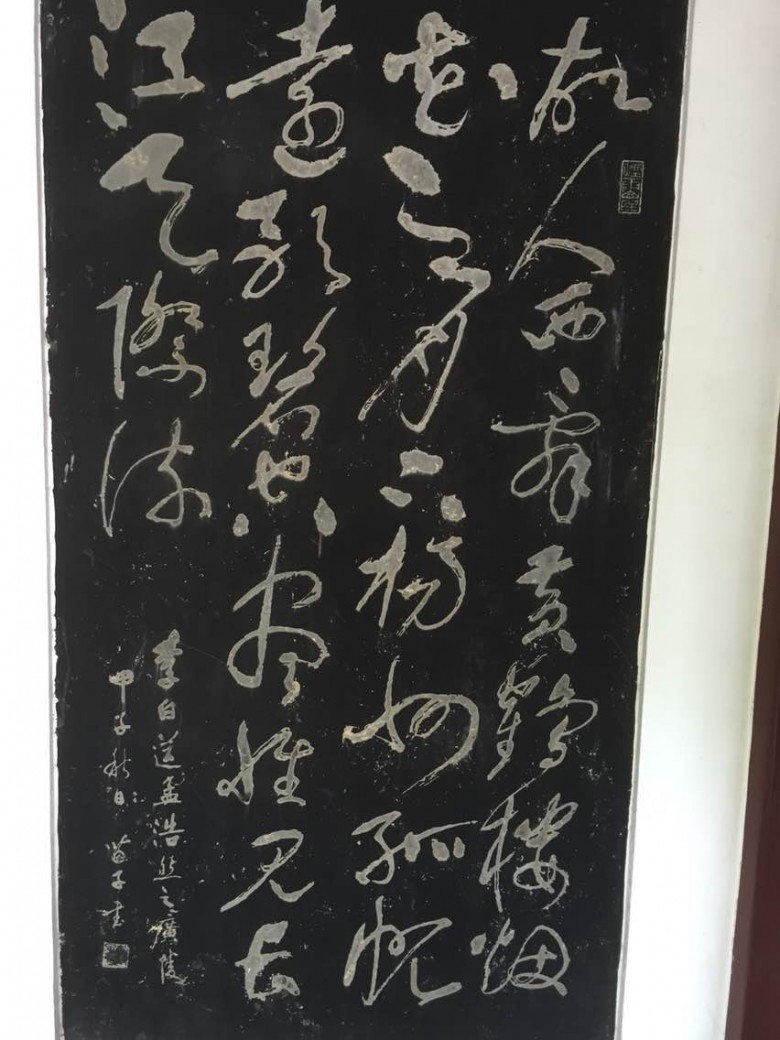 故人西辭黃鶴樓烟
花三月下揚州孤帆
遠影碧空盡惟見長
江天際流
李白送孟浩然之廣陵
甲子秋日 苗子書